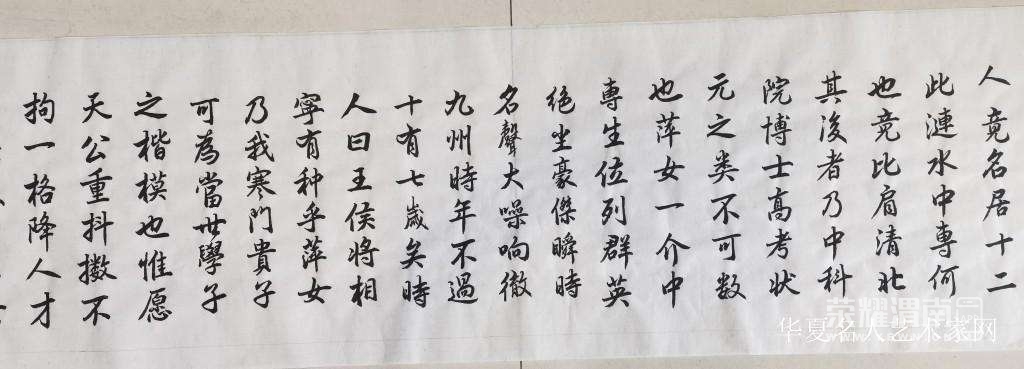 人竟名居十二
此涟水中專何
也竟比肩清北
其後者乃中科
院博士高考状
元之类不可数
也萍女一介中
專生位列群英
绝尘豪傑瞬時
名聲大噪响徹
九州時年不過
十有七歲矣時
人曰王侯将相
寜有种乎萍女
乃我寒门貴子
可為當世學子
之楷模也惟愿
天公重抖擞不
拘一格降人才
荣耀渭南网
华夏名人艺术家网